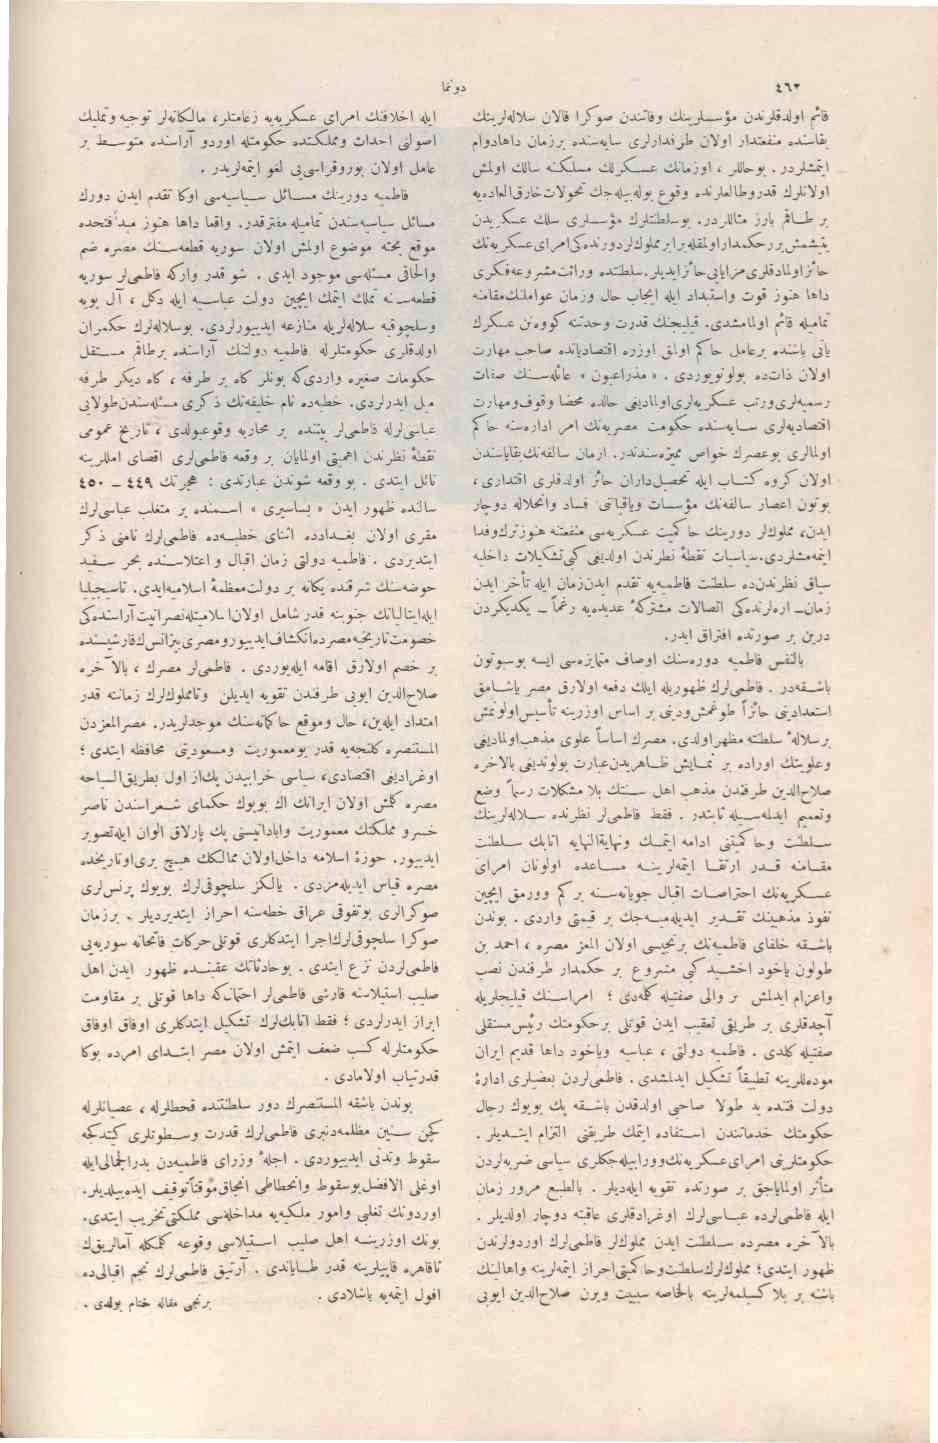 ٤٦٢
دونما
قائم اولدقلرندن مؤسسلرينك وفاتندن صوكرا قالان سلاله‌لرينك
بقاسنده منفعتدار اولان طرفدارلرى سايه‌سنده برزمان داهادوام
ايتمشلردر. بوحاللر ، اوزمانك عسكرلك مسلكنه سالك اولمش
اولانلرك قدروطالعلرنده وقوع بوله‌بيله‌جك تحولات خارق‌العاده‌يه
بر طاقم بارز مثاللردر. بوسلطنتلرك مؤسسلرى سلك عسكريدن
يتيشمش بررحكمدار اولمقله برابر مملوكلر دورنده‌كى امراى عسكريه‌نك
حائز اولمادقلرى مزاياىى حائز ايديلر. سلطنتده وراثت مشروعه فكرى
داها هنوز قوت واستبداد ايله ايجاب حال وزمان عواملنك مقامنه
تماميله قائم اولمامشدى. قيليجنك قدرت وحدتنه كوه‌نن عسكرك
يانى باشنده برعامل حاكم اولمق اوزره اقتصادياتده صاحب مهارت
اولان ذات‌ده بولونويوردى. « مذراعيون » عائله‌سنك صفات
رسميه‌لرى ورتب عسكريه‌لرى اولماديغى حالده محضا وقوف ومهارت
اقتصاديه‌لرى سايه‌سنده حكومت مصريه‌نك امر اداره‌سنه حاكم
اولمالرى بوعصرك خواص مميزه‌سندندر. ازمان سالفه‌نك بقاياسندن
اولان كروه كتاب ايله تحصيلداران حائز اولدقلرى اقتدارى ،
بوتون اعصار سالفه‌نك مؤسسات وباقياتنى فساد وانحلاله دوچار
ايدن، مملوكلر دورينك حاكميت عسكريه‌سى منفعتنه هنوز ترك وفدا
ايتمه‌مشلردى. سياسيات نقطهٔ نظرندن اولديغى كبى تشكيلات داخليه
سياق نظرندن‌ده سلطنت فاطميه‌يه تقدم ايدن زمان ايله تأخر ايدن
زمان ـ ارەلرنده‌كى اتصالات مشتركهٔ عديده‌يه رغماً ـ يكديكردن
درين بر صورتده افتراق ايدر.
بالنفس فاطميه دوره‌سنك اوصاف متمايزه‌سى ايسه بوسبوتون
باشقه‌در . فاطمى‌لرك ظهوريله ايلك دفعه اولارق مصر ياشامق
استعدادينى حائزاً طوغمش ودينى بر اساس اوزرينه تأسيس اولونمش
برسلالهٔ سلطنته مظهر اولدى. مصرك اساساً علوى مذهب اولماديغى
وعلويتك اوراده بر نمايش ظاهريدن عبارت بولونديغى بالاخره
صلاح‌الدين طرفندن مذهب اهل سنتك بلا مشكلات رسماً وضع
وتعميم ايدلمه‌سيله ثابتدر . فقط فاطمى‌لر نظرنده سلاله‌لرينك
سلطنت وحاكميتنى ادامه ايتمك ونهايةالنهايه اتابك سلطنت
مقامنه قدر ارتقا ايتمه‌لرينه مساعده اولونان امراى
عسكريه‌نك احتراصات اقبال جويانه‌سنه بر كم وورمق ايچين
نفوذ مذهبينك تقدير ايديله‌ميه‌جك بر قيمتى واردى . بوندن
باشقه خلفاى فاطميه‌نك برنجيسى اولان المعز مصره ، احمد بن
طولون ياخود اخشيد كبى متبوع بر حكمدار طرفندن نصب
واعزام ايدلمش بر والى صفتيله كلمه‌دى ؛ امراسنك قيليجلريله
آچدقلرى بر طريقى تعقيب ايدن قوتلى برحكومتك رئيس مستقلى
صفتيله كلدى . فاطميه دولتى ، عباسيه وياخود داها قديم ايران
موده‌للرينه تطبيقاً تشكيل ايدلمشدى . فاطمى‌لردن بعضيلرى ادارهٔ
دولت فننده يد طولا صاحبى اولدقدن باشقه پك بويوك رجال
حكومتك خدماتندن استفاده ايتمك طريقنى التزام ايتديلر .
حكومتلرينى امراى عسكريه‌نك ووررابيله‌جكلرى سياسى ضربه‌لردن
متأثر اولماياجق بر صورتده تقويه ايله‌ديلر . بالطبع مرور زمان
ايله فاطمى‌لرده عباسى‌لرك اوغرادقلرى عاقبته دوچار اولديلر .
بالآخره مصرده سلطنت ايدن مملوكلر فاطمى‌لرك اوردولرندن
ظهور ايتدى؛ مملوك‌لرك سلطنت وحاكميتى احراز ايتمه‌لرينه واهالينك
باشنه بر بلا كسيلمه‌لرينه بالخاصه سببيت ويرن صلاح‌الدين ايوبى
ايله اخلافنك امراى عسكريه‌يه زعامتلر، مالكانه‌لر توجيه وتمليك
اصولنى احداث ومملكتده حكومتله اوردو آراسنده متوسط بر
عامل اولان بوروقراسى‌يى لغو ايتمه‌لريدر .
فاطميه دورينك مسائل سياسيه‌سى اوكا تقدم ايدن دورك
مسائل سياسيه‌سندن تماميله مفترقدر. واقعا داها هنوز مبدأ فتحده
موقع بحثه موضوع اولمش اولان سوريه قطعه‌سنك مصره ضم
والحاقى مسئله‌سى موجود ايدى . شو قدر واركه فاطمى‌لر سوريه
قطعه‌سنه تملك ايتمك ايچين دولت عباسيه ايله دكل ، آل بويه
وسلچوقيه سلاله‌لريله منازعه ايدييورلردى. بوسلاله‌لرك حكمران
اولدقلرى حكومتلرله فاطميه دولتنك آراسنده برطاقم مستقل
حكومات صغيره واردى‌كه بونلر كاه بر طرفه ، كاه ديكر طرفه
ميل ايدرلردى. خطبه‌ده نام خليفه‌نك ذكرى مسئله‌سندن طولايى
عباسى‌لرله فاطمى‌لر بيننده بر محاربه وقوعبولدى ، تاريخ عمومى
نقطهٔ نظرندن اهميتى اولمايان بر وقعه فاطمى‌لرى اقصاى املارينه
نائل ايتدى . بو وقعه شوندن عبارتدى : هجرتك ٤٤٩ ـ ٤٥٠
سالنده ظهور ايدن « بساسيرى » اسمنده بر متغلب عباسى‌لرك
مقرى اولان بغدادده اثناى خطبه‌ده فاطمى‌لرك نامنى ذكر
ايتديردى . فاطميه دولتى زمان اقبال واعتلاسنده بحر سفيد
حوضه‌سنك شرقنده يكانه بر دولت معظمهٔ اسلاميه‌ايدى. تاسيجيليا
ايله ايتاليانك جنوبنه قدر شامل اولان اسلاميتله نصرانيت آراسنده‌كى
خصومت تاريخيه مصرده انكشاف ايدييور ومصرى بيزانس‌ك قارشيسنده
بر خصم اولارق اقامه ايله‌يوردى . فاطمى‌لر مصرك ، بالآخره
صلاح‌الدين ايوبى طرفندن تقويه ايديلن وتامملوك‌لرك زماننه قدر
امتداد ايله‌ين، حال وموقع حاكمانه‌سنك موجدلريدر. مصر المعزدن
المستنصره كلنجه‌يه قدر بومعموريت ومسعوديتى محافظه ايتدى ؛
اوغراديغى اقتصادى، سياسى خرابيدن پك‌از اول بطريق السياحه
مصره كلمش اولان ايرانك اك بويوك حكماى شعراسندن ناصر
خسرو مملكتك معموريت وآباداتيسنى پك پارلاق الوان ايله تصوير
ايدييور. حوزهٔ اسلامه داخل اولان ممالكك هيچ برى اوتاريخده
مصره قياس ايديله‌مزدى . يالكز سلچوقى‌لرك بويوك پرنس‌لرى
صوكرالرى بوتفوقى عراق خطه‌سنه احراز ايتديرديلر . برزمان
صوكرا سلچوقى‌لرك اجرا ايتدكلرى قوتلى حركات فاتحانه سوريه‌يى
فاطمى‌لردن نزع ايتدى . بوحادثاتك عقبنده ظهور ايدن اهل
صليب استيلاسنه قارشى فاطمى‌لر احتمال‌كه داها قوتلى بر مقاومت
ابراز ايدرلردى ؛ فقط اتابك‌لرك تشكيل ايتدكلرى اوفاق اوفاق
حكومتلرله كسب ضعف ايتمش اولان مصر ابتداى امرده بوكا
قدرتياب اولامادى .
بوندن باشقه المستنصرك دور سلطنتنده قحطلرله ، عصيانلرله
كچن سنين مظلمه‌دنبرى فاطمى‌لرك قدرت وسطوتلرى كيتدكجه
سقوط وتدنى ايدييوردى . اجلهٔ وزراى فاطميه‌دن بدرالجمالى‌ايله
اوغلى الافضل بوسقوط وانحطاطى آنجاق مؤقتاً توقيف ايده‌بيلديلر.
اوردونك تغلبى وامور ملكيه‌يه مداخله‌سى مملكتى تخريب ايتدى.
بونك اوزرينه اهل صليب استيلاسى وقوعه كلمكله آمالريق‌ك
تاقاهره قاپيلرينه قدر طاياندى . آرتيق فاطمى‌لرك نجم اقبالى‌ده
افول ايتمه‌يه باشلادى .
برنجى مقاله ختام بولدى .